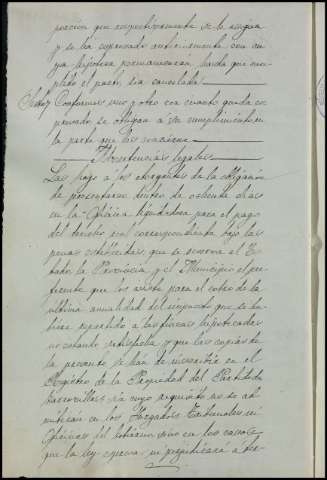 porcion que respectivamente se le asigna
y se ha expresado anteriormente con cu
ya hipoteca permanecerán hasta que cum
plido el pacto, sea cancelada
Conformes unos y otros con cuanto queda ex
presado se obligan a su cumplimiento en
la parte que les concierne
Advertencias legales
Las hago a los otorgantes de la obligación
de presentarse dentro de ochenta dias
en la Oficina liquidadora para el pago
del derecho real correspondiente bajo las
penas establecidas que se reserva el Es
tado, la Provincia y el Municipio el pre
ferente que los asiste para el cobro de la
última anualidad del impuesto que se hu
biera repartido á las fincas hipotecadas
no estando satisfecha y que las copias de
la presente se han de inscribir en el
Registro de la Propiedad del Partido
sin cuyo requisito no se ad
mitirán en los Juzgados Tribunales ni
Oficinas del Gobierno sino en los casos
que la ley expresa ni perjudicará á ter